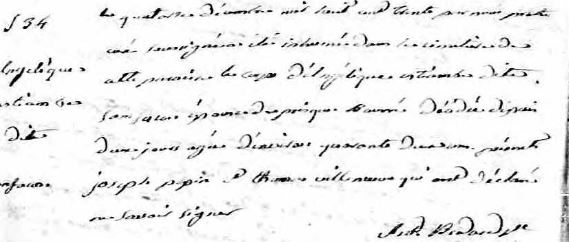 S 34
Le quatorze décembre mil huit cent trente par nous prêtre
curé soussigné a été inhumé dans le cimetière de
Angélique
cette paroisse le corps d'Angélique dite
Sanfaçon épouse de décédée depuis
dite
deux jours agée d'environ quarante deux ans présents
Sanfaçon
joseph pepin et Thomas villeneuve qui ont déclaré
ne savoir signer
Ant. Bedard Ptre